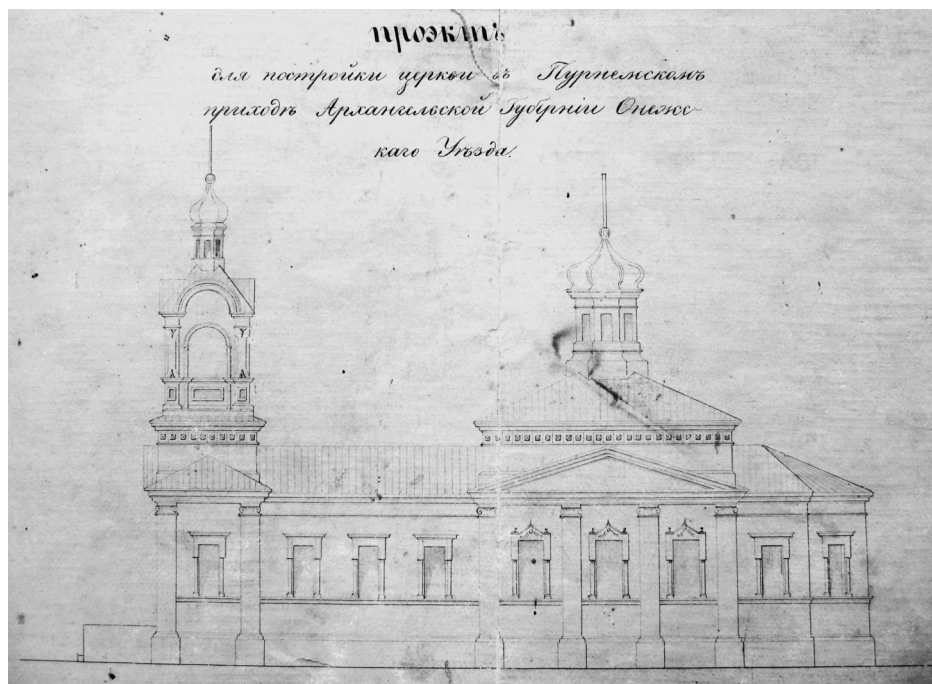 проэктъ
для постройки церкви въ Пурнемскомъ
приходѣ Архангельской Губерніи Онежс-
каго Уѣзда.